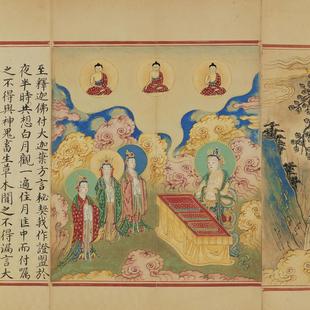 至釋迦佛付大迦葉方言秘契我作證盟於
夜半時共想白月觀一遍住月匡中而付囑
之不得與神鬼畜生草木聞之不得漏言大